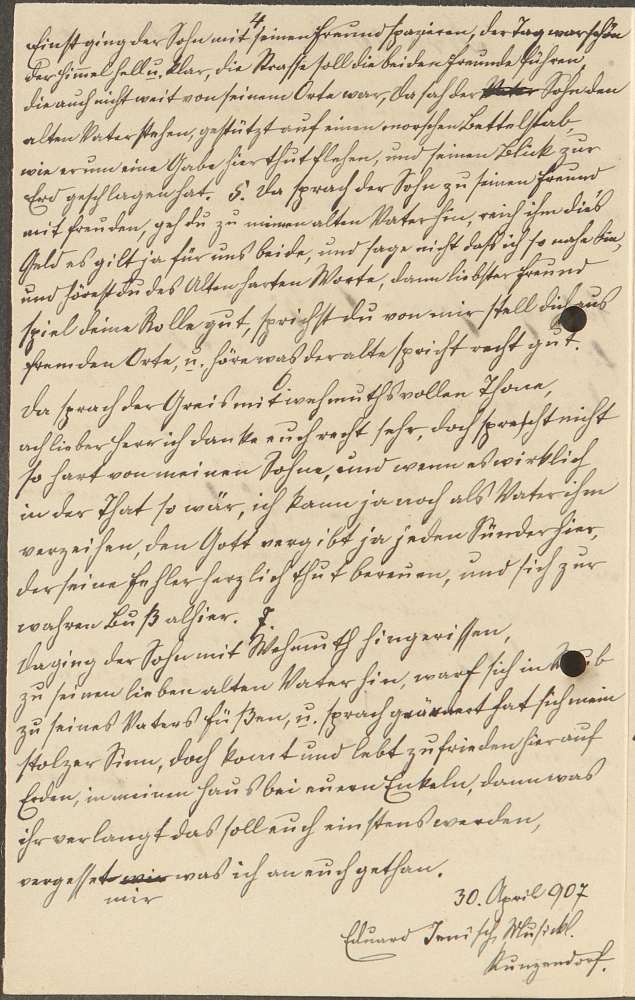 4.
Einst ging der Sohn mit seinen Freund spazieren, der Tag war schön
der Himel hell u. klar, die Strasse soll die beiden Freunde führen,
die auch nicht weit von seinem Orte war, da sah der Vater Sohn den
alten Vater stehen, gestützt auf einen morschen Bettelstab,
wie er um eine Gabe hier thut flehen, und seinen Blick zur
Erd geschlagen hat. 5. Da sprach der Sohn zu seinen Freund
mit Freuden, geh du zu meinen alten Vater hin, reich ihm dies
Geld es gilt ja für uns beide, und sage nicht daß ich so nahe bin,
und hörest du des Alten harten Worte, dann liebster Freund
spiel deine Rolle gut, sprichst du von mir stell dich aus
fremden Orte, u. höre was der alte spricht recht gut.
6
Da sprach der Greis mit wehmuthsvollen Thone,
ach lieber Herr ich danke euch recht sehr, doch sprecht nicht
so hart von meinen Sohne, und wenn es wirklich
in der That so wär, ich kann ja noch als Vater ihm
verzeihen, den Gott vergibt ja jeden Sünder hier,
der seine Fehler herzlich thut bereuen, und sich zur
wahren Buß alhier. 7.
Da ging der Sohn mit Wehmuth hingerissen,
zu seinen lieben alten Vater hin, warf sich in
zu seines Vaters Füßen, u. sprach geändert hat sich mein
stolzer Sinn, doch komt und lebt zufrieden hier auf
Erden, in meinen Haus bei euern Enkeln, dann was
ihr verlangt das soll euch einstens werden,
vergesset wir was ich an euch gethan.
mir
30. April 907
Eduard Jenisch, Musikl.
Kunzendorf.